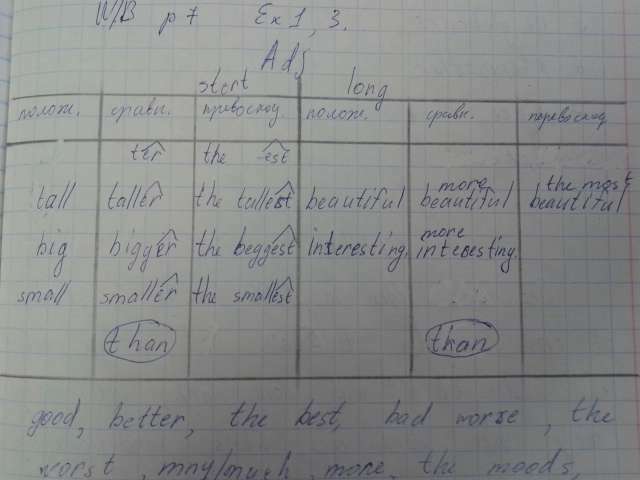 W/B p 7 Ex 1, 3.
Adj
stort long
полож. сравн. превосход. полож. сравн. перевосход
ter the -est
more the most
tall taller the tallest beautiful beautiful beautiful
more
big bigger the beggest interesting. interesting.
small smaller the smallest
than than
good, better, the best, bad worse, the
worst, mny/much, more, the moods,